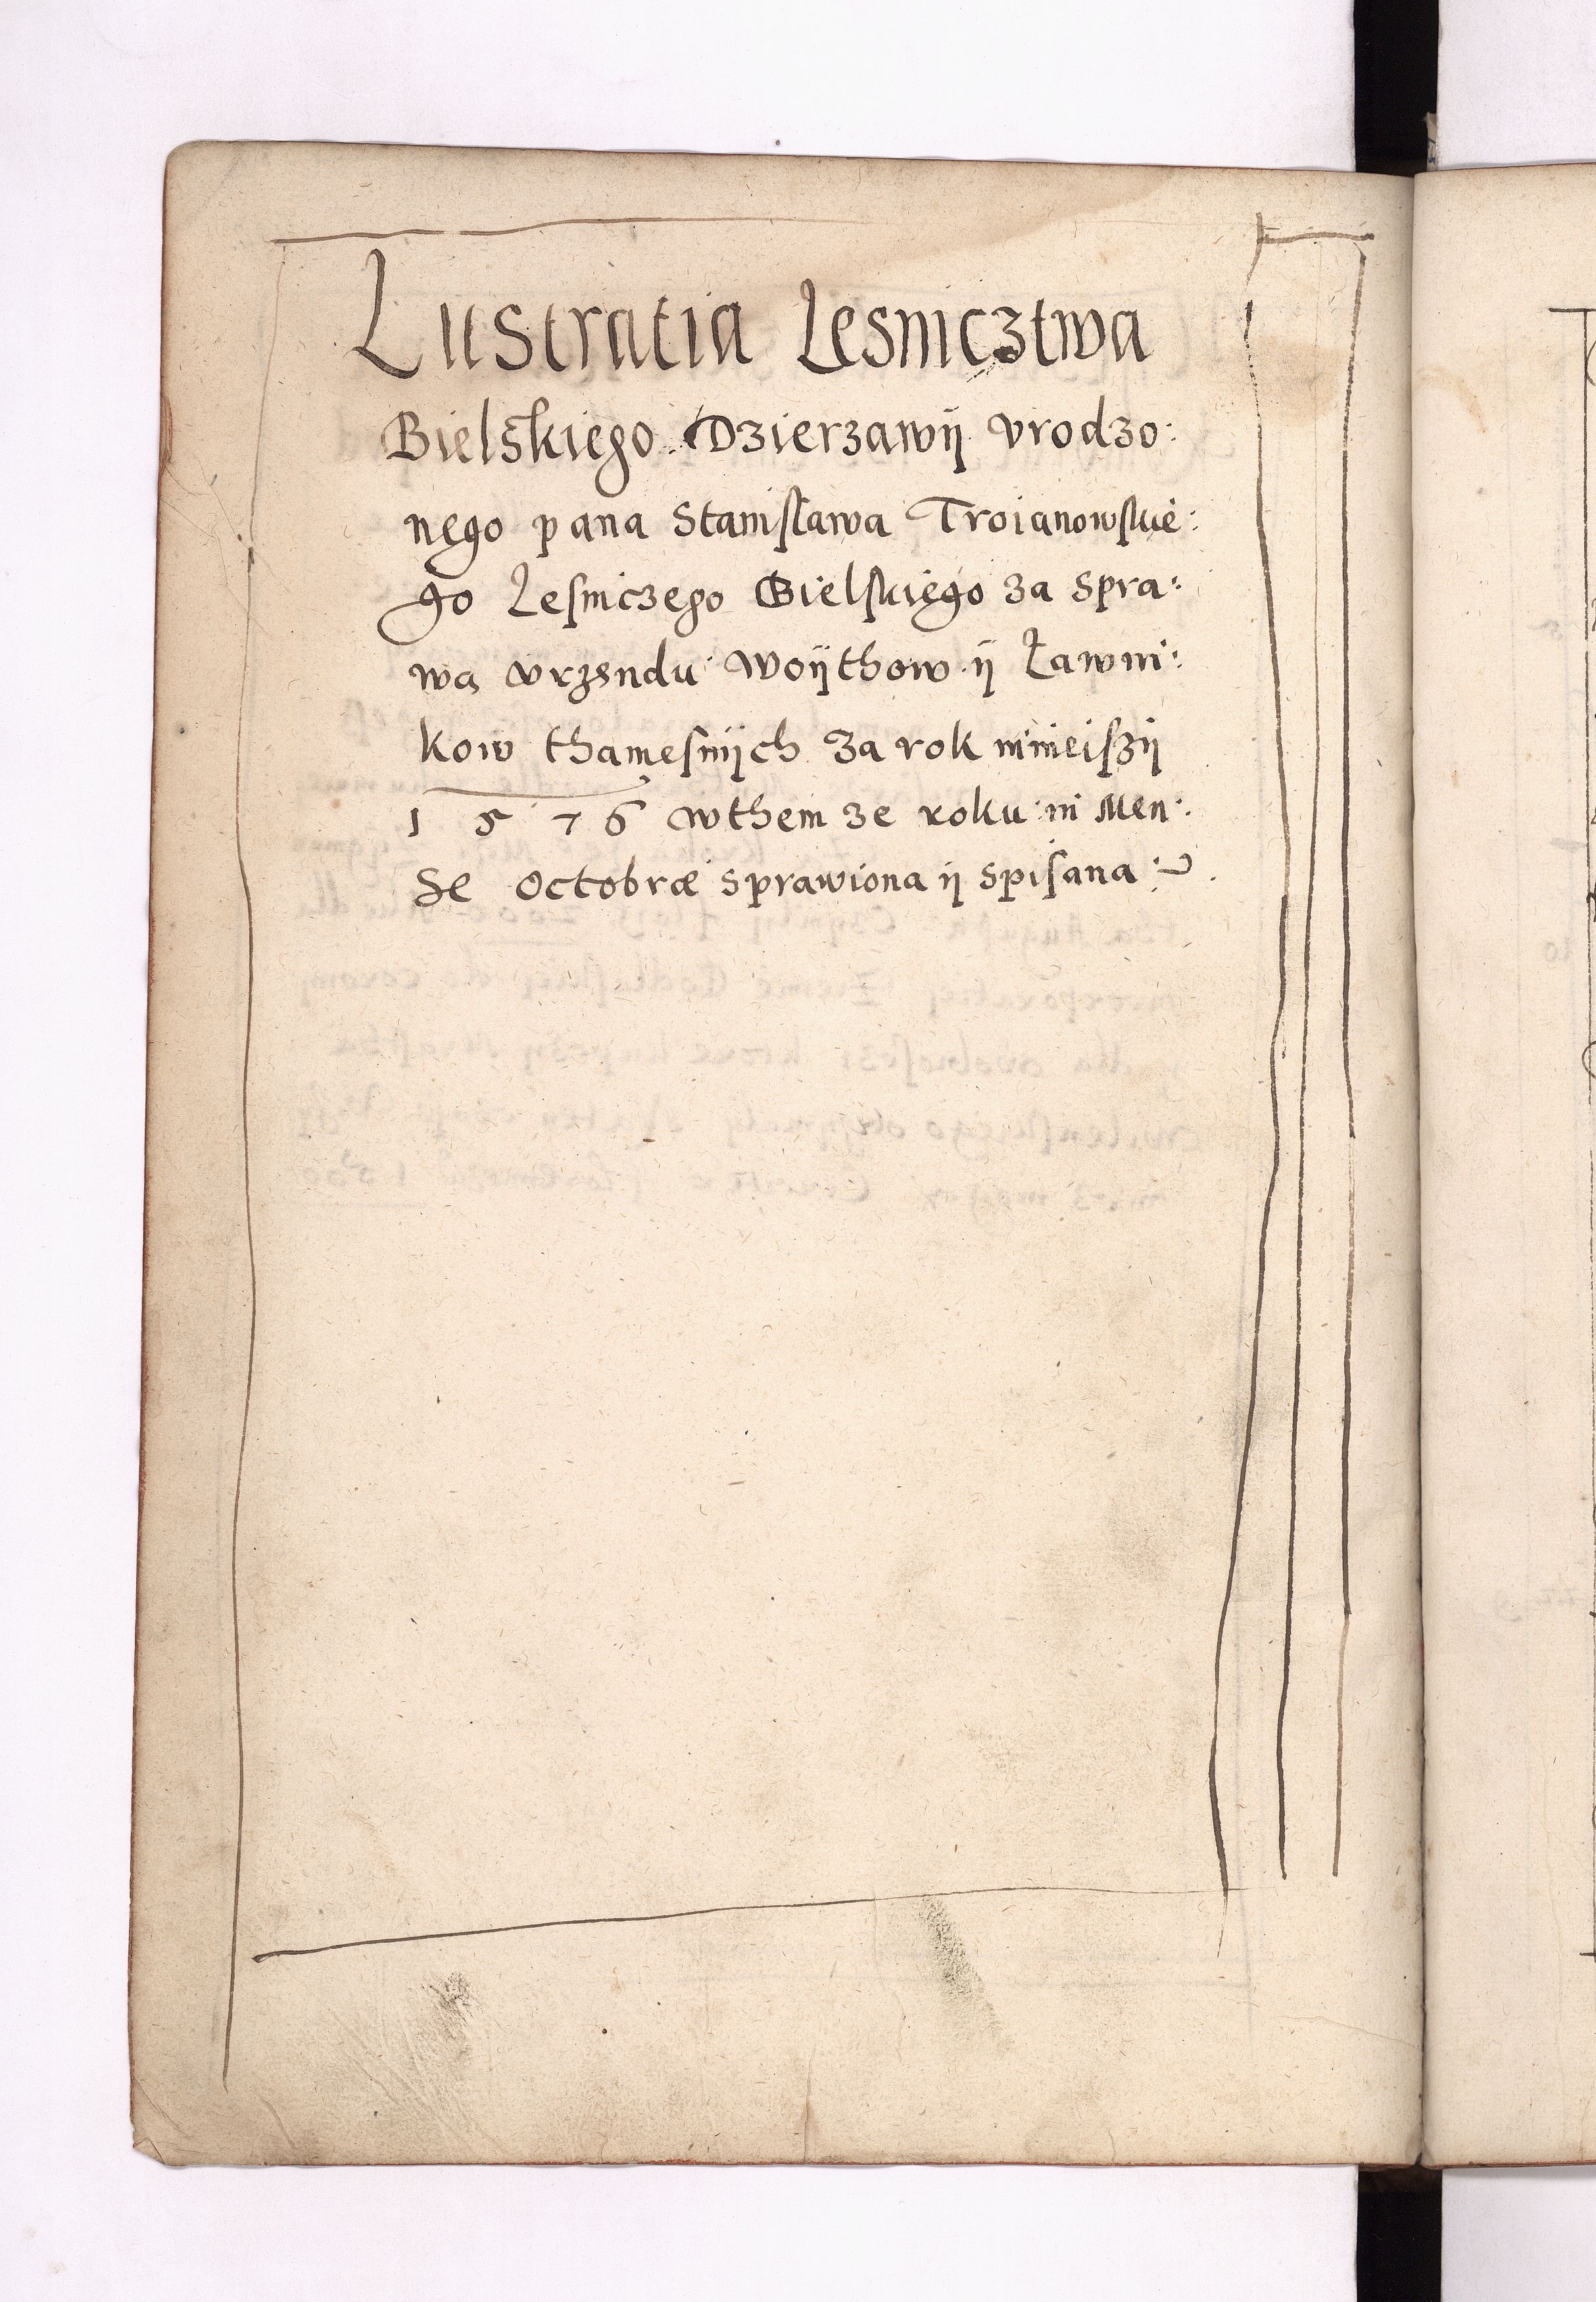 Lustratia Lesnicztwa
Bielskiego Dzierzawÿ vrodzo:
nego pana Stanisława Troianowskie:
go Lesniczego Bielskiego za spra:
wą vrzendu Woÿthow ÿ Ławni:
kow thamesnÿch za rok ninieiszÿ
1576 wthem ze roku in Men:
se Octobræ sprawiona ÿ spisana